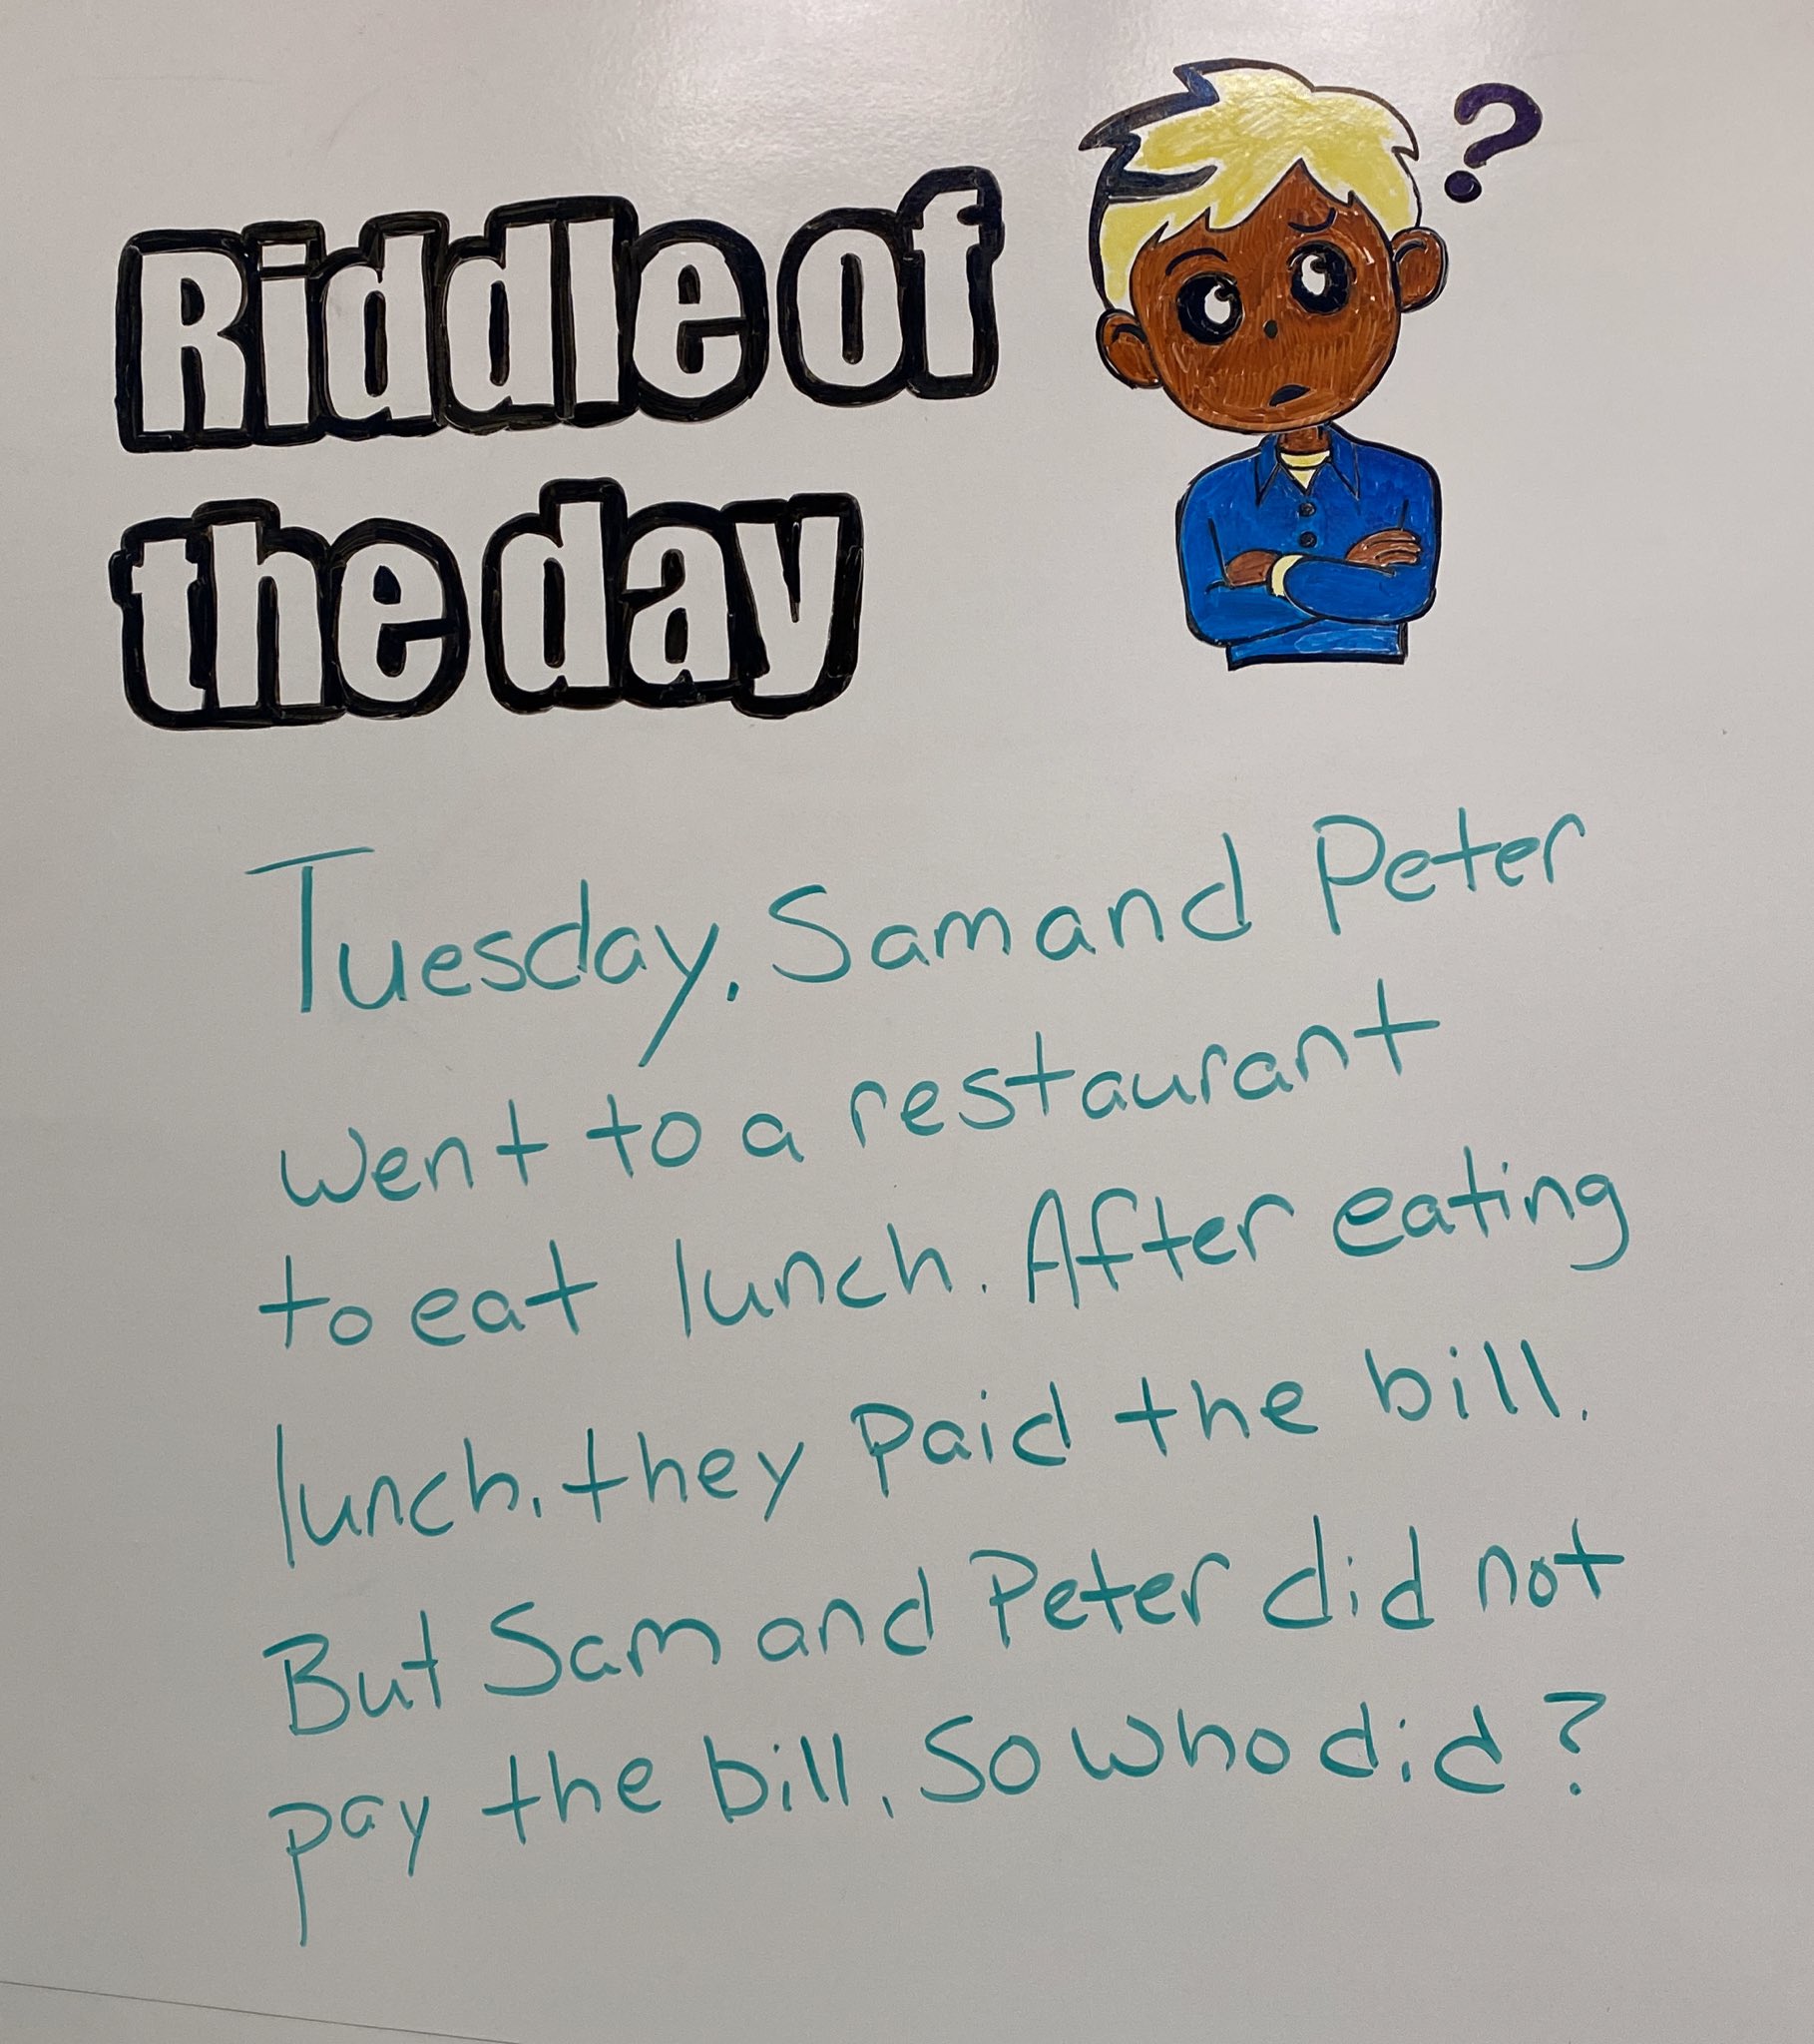 Riddle of
the day
?
Tuesday, Sam and Peter
went to a restaurant
to eat lunch. After eating
lunch, they paid the bill.
But Sam and Peter did not
pay the bill, So who did?